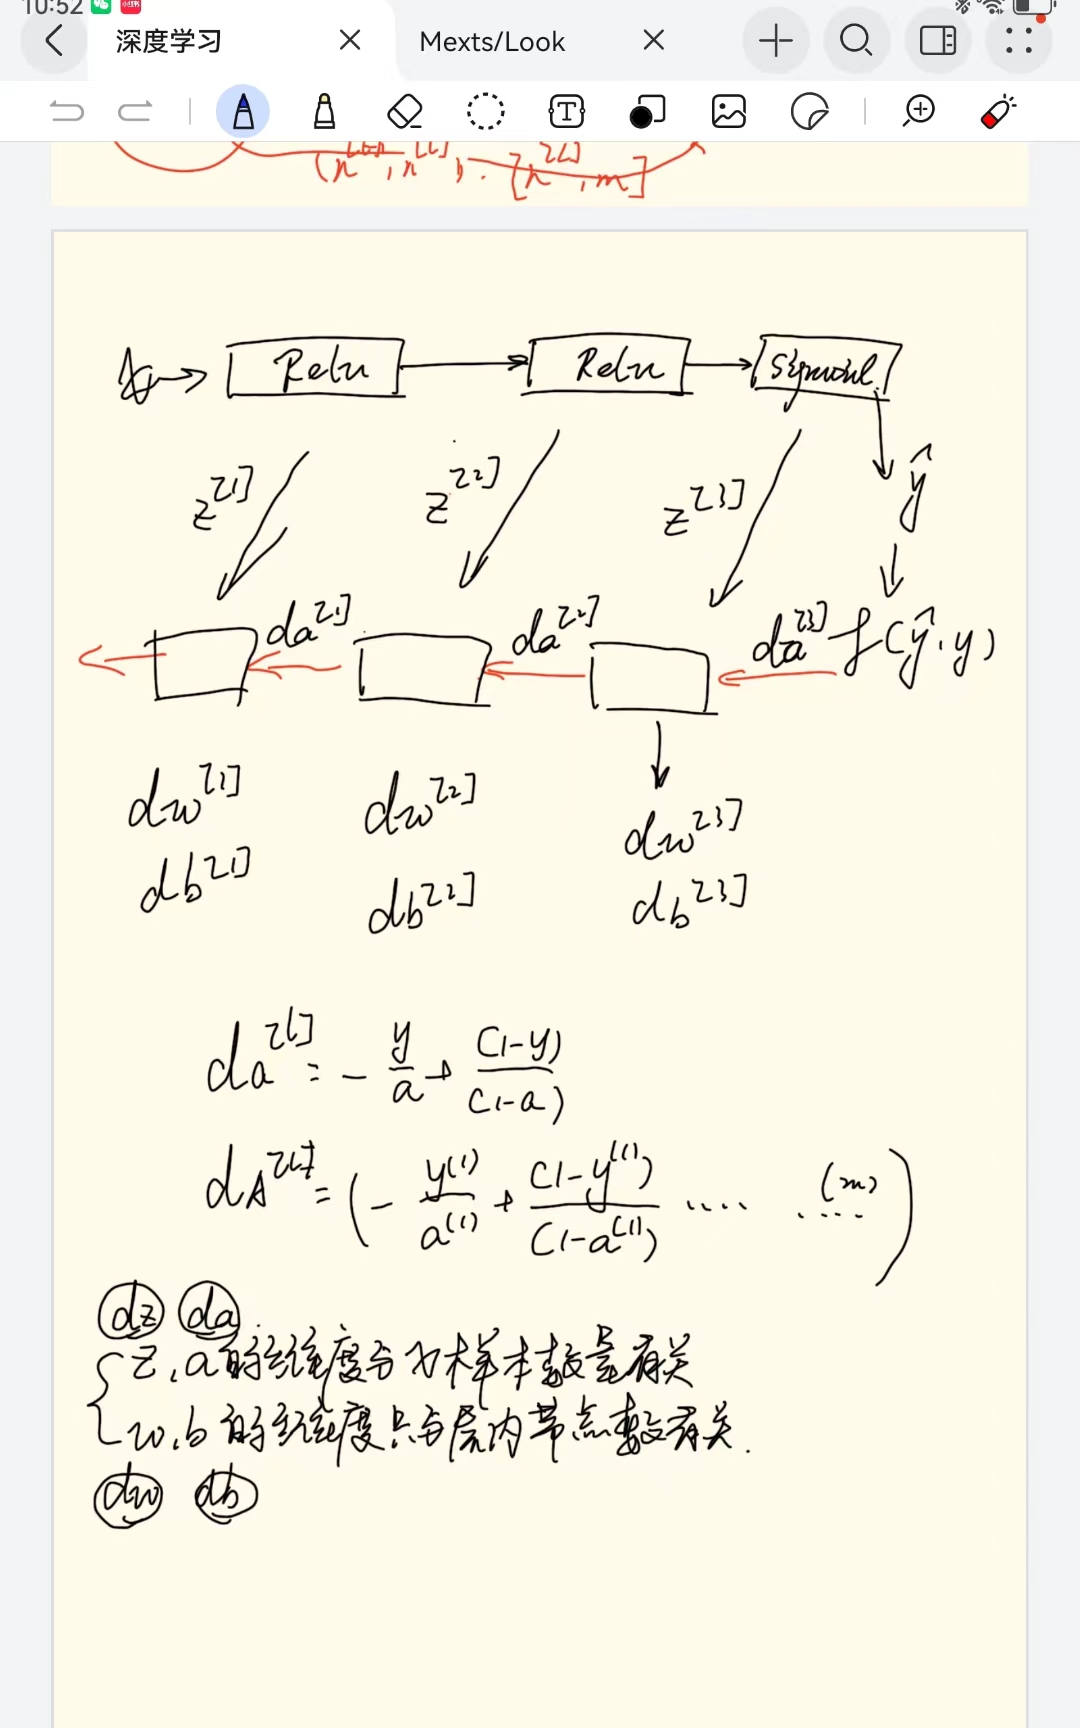 10:52
深度学习
Mexts/Look
[n , m]
Relu Relu Sigmoid
z[1] z[2] z[3] ŷ
da[1] da[2] da[3] f(ŷ, y)
dw[1] dw[2] dw[3]
db[1] db[2] db[3]
da[l] = - y/a + (1-y)/(1-a)
dA[l] = (- y(1)/a(1) + (1-y(1))/(1-a(1)) .... (m) ....)
dz da
z, a的维度与样本数量有关
w, b的维度只与层内节点数有关.
dw db